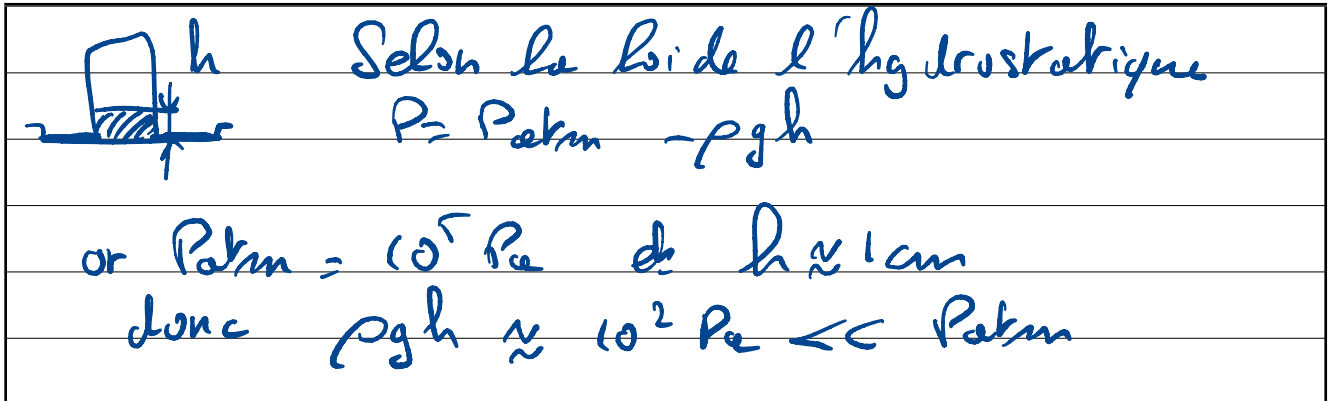 h Selon la loi de l'hydrostatique
P = Patm - ρgh
or Patm = 10⁵ Pa et h ≈ 1 cm
donc ρgh ≈ 10² Pa << Patm